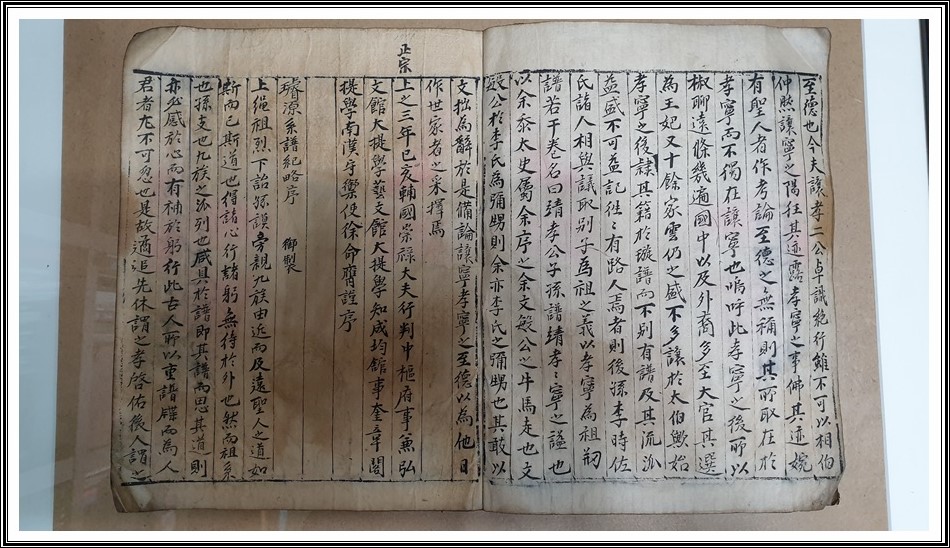 至德也今夫讓孝二公卓識絶行雖不可以相伯
仲然讓寧之陽狂其迹露孝寧之事佛其迹婉
有聖人者作考論至德之無稱則其所取在於
孝寧而不獨在讓寧也嗚呼此孝寧之後所以
椒聊遠條幾遍國中以及外裔多至大官其選
為王妃又十餘家雲仍之盛不多讓於太伯歟始
孝寧之後隸其籍於璇譜而不別有譜及其流派
益盛不可盡記徃〻有路人焉者則後孫李時佐
氏諸人相與議取別子為祖之義以孝寧為祖剏
譜若干卷名曰靖孝公子孫譜靖孝〻寧之謚也
以余忝太史属余序之余文敏公之牛馬走也文
敏公於李氏為彌甥則余亦李氏之彌甥也其敢以
文拙為辭於是備論讓寧孝寧之至德以為他日
作世家者之采擇焉
正宗
上之三年己亥輔國崇祿大夫行判中樞府事兼弘
文館大提學藝文館大提學知成均館事奎章閣
提學南漢守禦使徐命膺謹序
璿源系譜紀略序 御製
上繩祖烈下詒孫謨旁親九族由近而及遠聖人之道如
斯而已斯道也得諸心行諸躬無待於外也然而祖系
也孫支也九族之派列也咸具於譜即其譜而思其道則
亦必感於心而有補於躬行此古人所以重譜牒而為人
君者尤不可忽也是故遹追先休謂之孝啓佑後人謂之